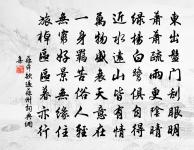 東出盤門刮眼明
蕭蕭疏雨更陰晴
綠楊白鷺俱自得
近水遠山皆有情
萬物盛衰天意在
一身羈苦俗人輕
無窮好景無緣住
旅棹區區暮亦行
蘇舜欽過蘇州詞典網